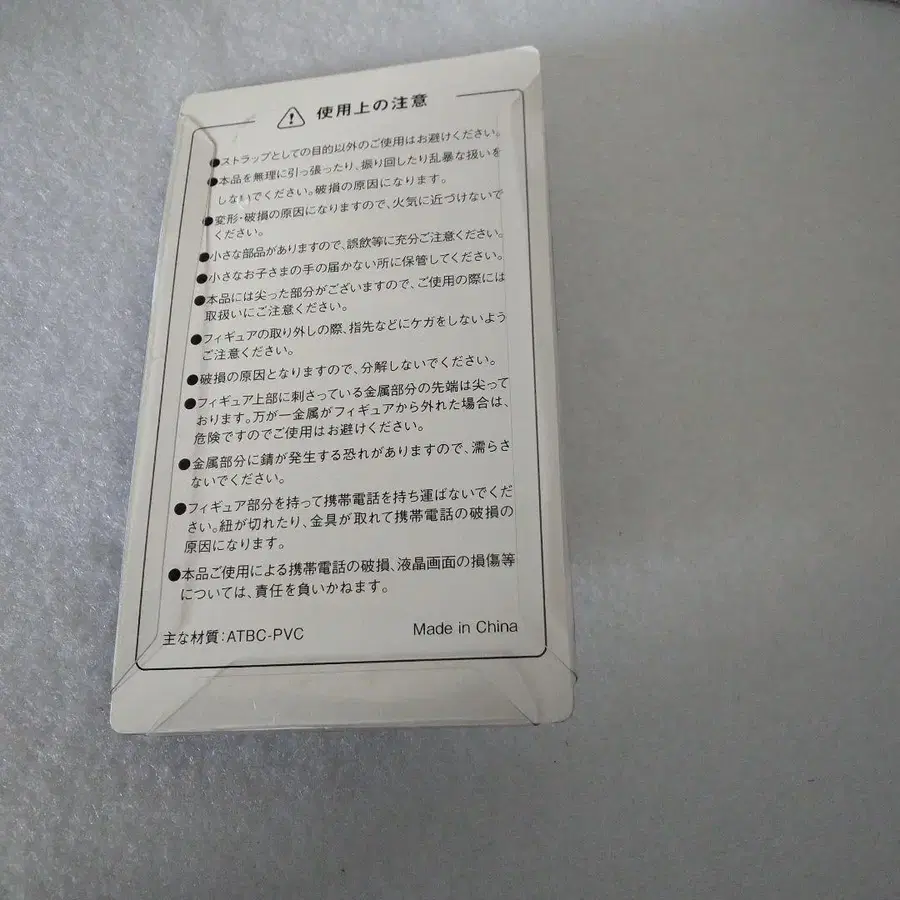 使用上の注意
●ストラップとしての目的以外のご使用はお避けください。
●本品を無理に引っ張ったり、振り回したり乱暴な扱いを
しないでください。破損の原因になります。
●変形・破損の原因になりますので、火気に近づけないで
ください。
●小さな部品がありますので、誤飲等に充分ご注意ください。
●小さなお子さまの手の届かない所に保管してください。
●本品には尖った部分がございますので、ご使用の際には
取扱いにご注意ください。
●フィギュアの取り外しの際、指先などにケガをしないよう
ご注意ください。
●破損の原因となりますので、分解しないでください。
●フィギュア上部に刺さっている金属部分の先端は尖って
おります。万が一金属がフィギュアから外れた場合は、
危険ですのでご使用はお避けください。
●金属部分に錆が発生する恐れがありますので、濡らさ
ないでください。
●フィギュア部分を持って携帯電話を持ち運ばないでくだ
さい。紐が切れたり、金具が取れて携帯電話の破損の
原因になります。
●本品ご使用による携帯電話の破損、液晶画面の損傷等
については、責任を負いかねます。
主な材質：ATBC-PVC
Made in China